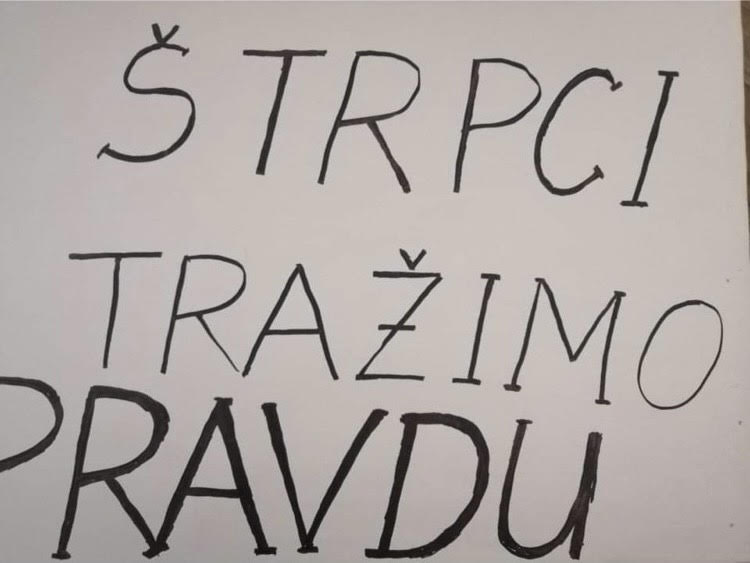 ŠTRPCI
TRAŽIMO
PRAVDU